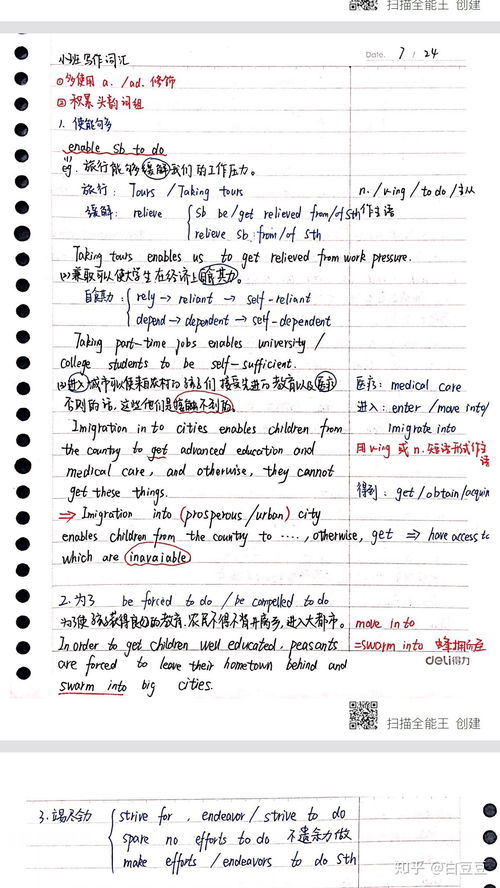 扫描全能王 创建
Date. 7 / 24
小班写作词汇
①多使用 a. /ad. 修饰
② 积累头韵词组
1. 使能够
enable sb to do
eg. 旅行能够缓解我们的工作压力。
旅行: Tours / Taking tours
n. / v-ing / to do /主从作主语
缓解: relieve { sb be/get relieved from/of sth
relieve sb from/of sth
Taking tours enables us to get relieved from work pressure.
(2) 兼职可以使大学生在经济上自食其力。
自食其力: { rely → reliant → self-reliant
depend → dependent → self-dependent
Taking part-time jobs enables university /
college students to be self-sufficient.
(3)进入城市可以使来自农村的孩子们接受先进的教育以及医疗
医疗: medical care
否则的话, 这些他们是接触不到的。
进入: enter / move into/
imigrate into
Imigration in to cities enables children from
the country to get advanced education and
用 v-ing 或 n. 短语形式作主语
medical care, and otherwise, they cannot
get these things.
得到: get / obtain / acquire
⇒ Imigration into (prosperous /urban) city
enables children from the country to ....., otherwise,
get ⇒ have access to
which are inavaiable
2. 为了 be forced to do / be compelled to do
为了使孩子获得良好的教育, 农民不得不背井离乡, 进入大都市。
move in to
In order to get children well educated, peasants
=sworm into 蜂拥而至
are forced to leave their hometown behind and
deli得力
sworm into big cities.
扫描全能王 创建
3. 竭尽全力 { strive for , endeavor / strive to do
spare no efforts to do 不遗余力做
make efforts / endeavors to do sth
知乎 @白豆豆